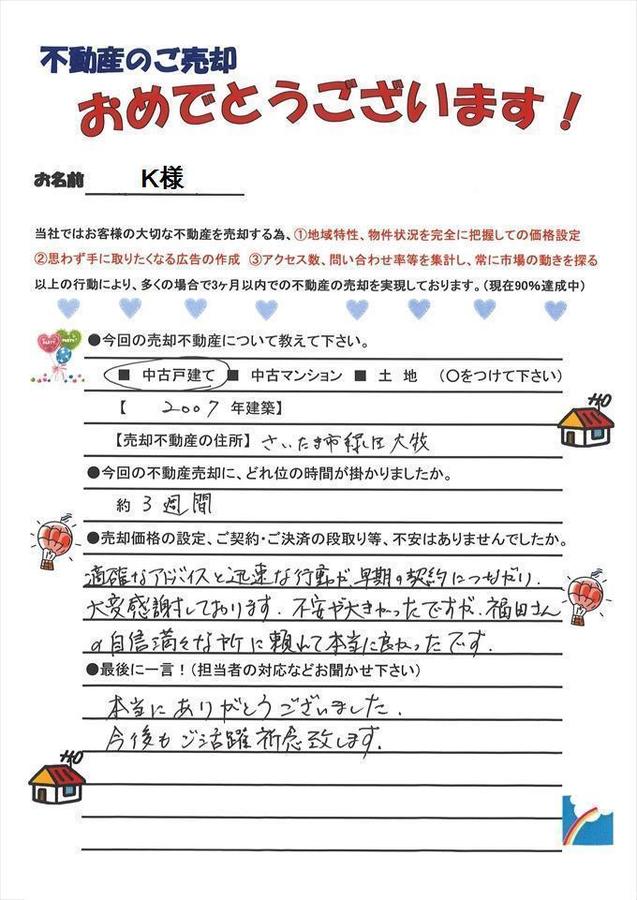 不動産のご売却
おめでとうございます!
お名前 K様
当社ではお客様の大切な不動産を売却する為、①地域特性、物件状況を完全に把握しての価格設定
②思わず手に取りたくなる広告の作成 ③アクセス数、問い合わせ率等を集計し、常に市場の動きを探る
以上の行動により、多くの場合で3ヶ月以内での不動産の売却を実現しております。(現在90%達成中)
●今回の売却不動産について教えて下さい。
■ 中古戸建て ■ 中古マンション ■ 土 地 (〇をつけて下さい)
【 2007 年建築】
【売却不動産の住所】 さいたま市緑区大牧
●今回の不動産売却に、どれ位の時間が掛かりましたか。
約3週間
●売却価格の設定、ご契約・ご決済の段取り等、不安はありませんでしたか。
適確なアドバイスと迅速な行動が早期の契約につながり、
大変感謝しております。不安や大きかったですが、福田さん
の自信満々な所に頼れて本当に良かったです。
●最後に一言!(担当者の対応などお聞かせ下さい)
本当にありがとうございました。
今後もご活躍祈念致します。